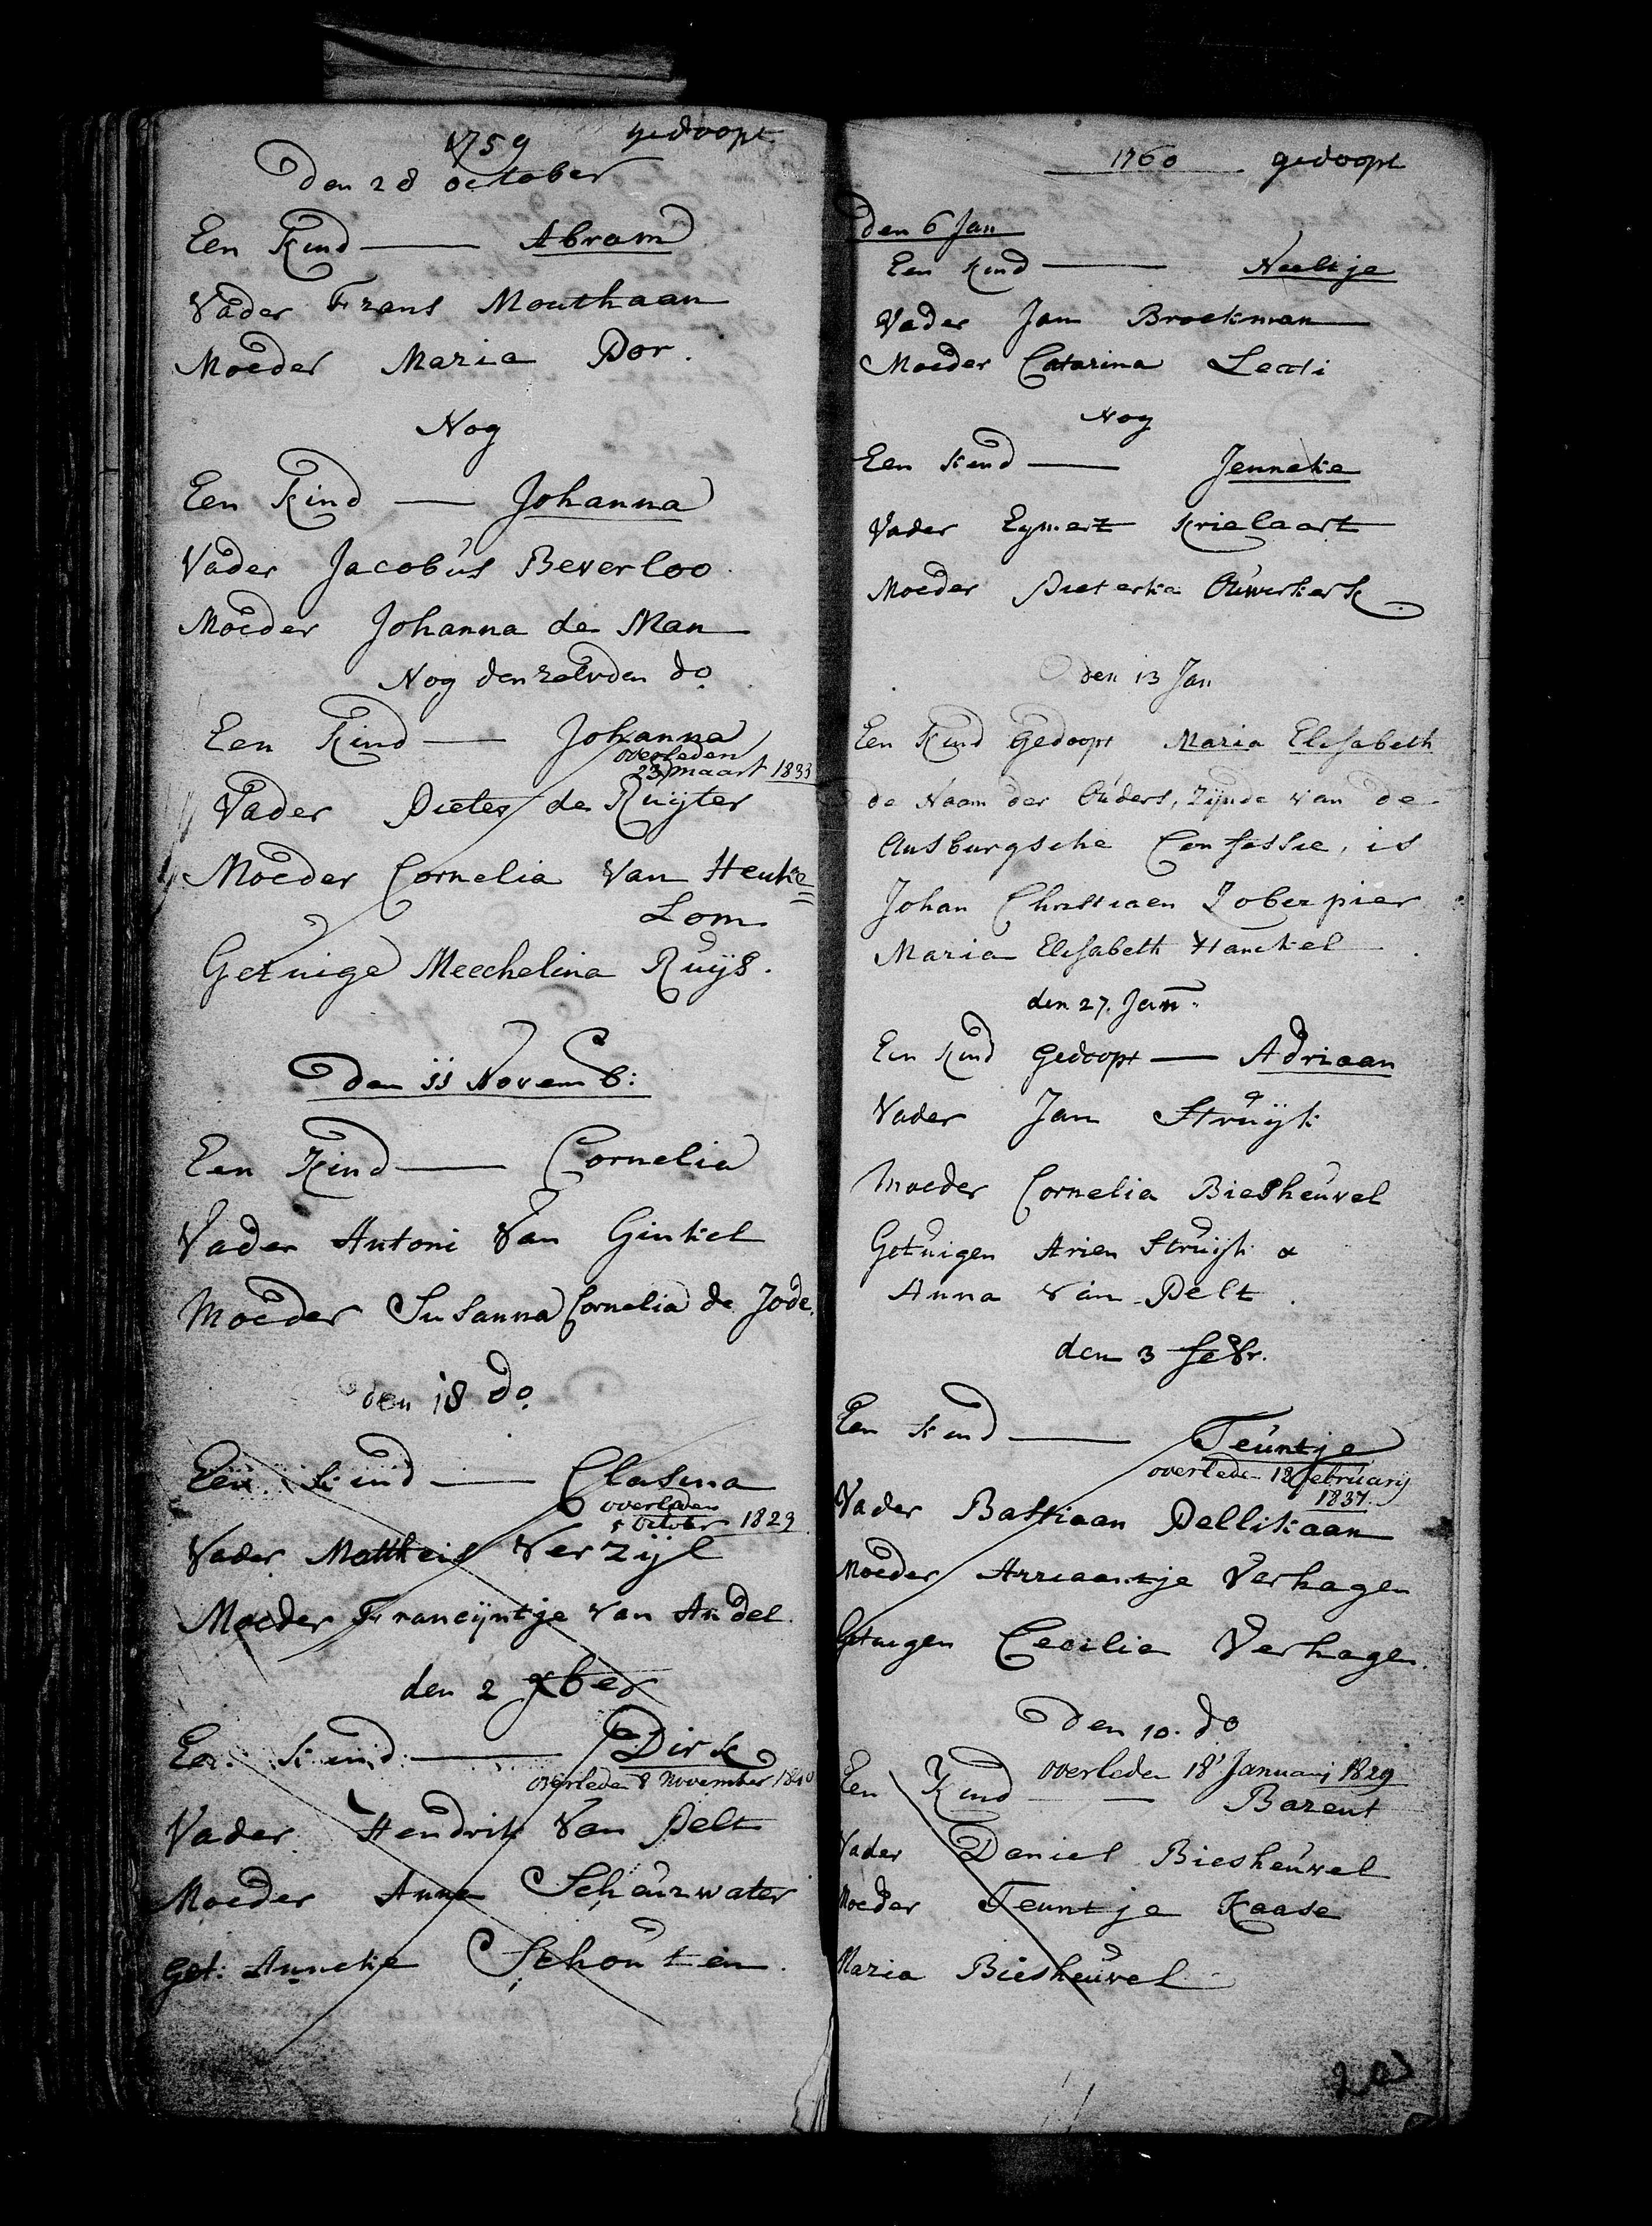 1759 gedoopt
den 28 october
Een Kind — Abram
Vader Frans Mouthaan
Moeder Maria Dor.
Nog
Een Kind — Johanna
Vader Jacobus Beverloo
Moeder Johanna de Man
Nog den zelvden do
Een Kind — Johanna
overleden
23 maart 1833
Vader Pieter de Ruijter
Moeder Cornelia Van Heuke=
Lom
Getuige Meechelina Ruijs.
Den 11 Novemb:
Een Kind — Cornelia
Vader Antoni Van Ginkel
Moeder Susanna Cornelia de Jode.
den 18 do
Een Kind — Clasina
overleden
5 October 1829
Vader Mattheis Verzijl
Moeder Francijntje van Andel.
den 2 xber
Een Kind — Dirk
overleden 8 November 1840
Vader Hendrik Van Pelt
Moeder Anna Scheurwater
Get: Anneke Schouten.
1760 gedoopt
den 6 Jan
Een Kind — Neeltje
Vader Jan Broekman
Moeder Catarina
Nog
Een Kind — Jenneke
Vader Eymert Krielaart
Moeder Pieterke Ouwerkerk.
den 13 Jan
Een Kind Gedoopt Maria Elisabeth
de Naam der Ouders, Zijnde van de
Ausburgsche Confessie, is
Johan Christiaen Loberpier
Maria Elisabeth Hanckel
den 27. Jan.
Een Kind Gedoopt — Adriaan
Vader Jan Struijk
Moeder Cornelia Biesheuvel
Getuigen Arien Struijk &
Anna van Pelt.
den 3 febr.
Een Kind — Teuntje
overleden 12 february
1837.
Vader Bastiaan Pellikaan
Moeder Arriaantje Verhagen
Getuigen Cecilia Verhagen.
Den 10. do
overleden 18 Januarij 1829
Een Kind — Barent
Vader Daniel Biesheuvel
Moeder Teuntje Kaase
Maria Biesheuvel